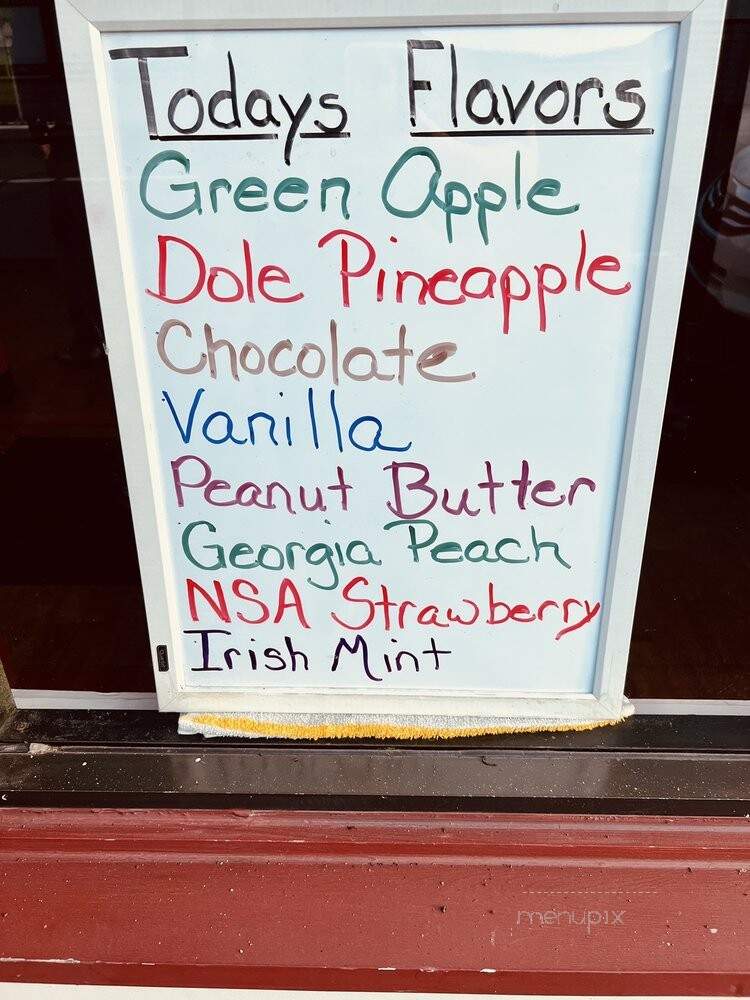 Todays Flavors
Green Apple
Dole Pineapple
Chocolate
Vanilla
Peanut Butter
Georgia Peach
NSA Strawberry
Irish Mint
menupix